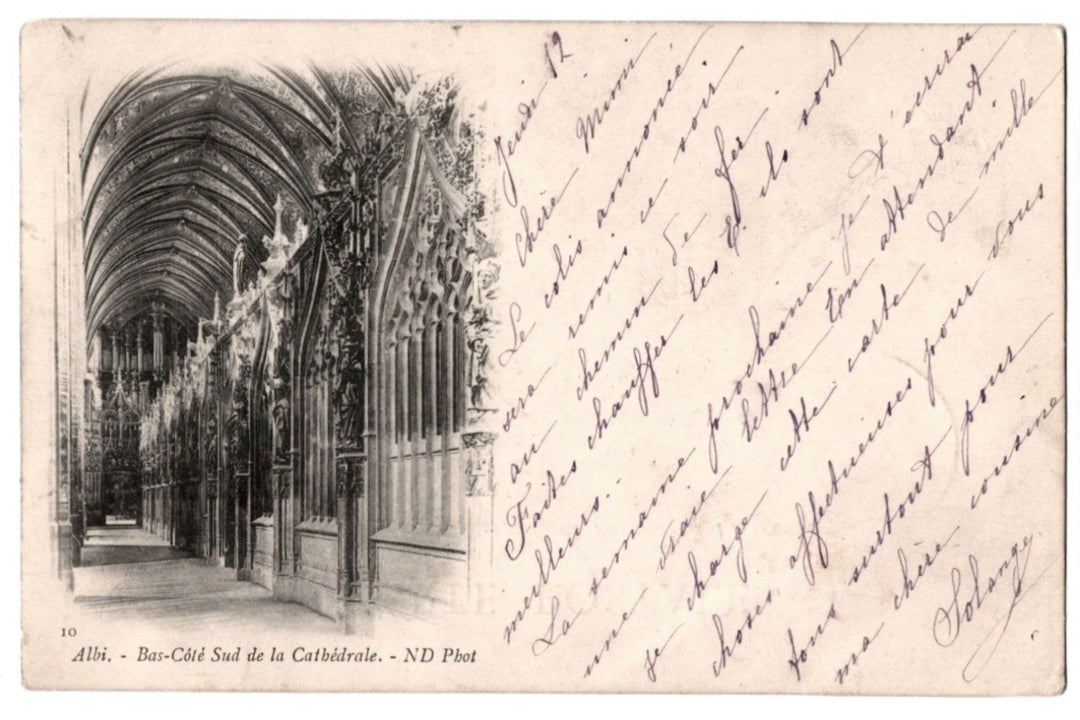 Jeudi 12
Chère Mimi
Le colis annoncé
sera remis ce soir
au chemin de fer.
Faites chauffer les P. ils sont
meilleurs..
La semaine prochaine je t'écrirai
une vraie lettre En attendant
je charge cette carte de mille
choses affectueuses pour vous
tous surtout pour
ma chère cousine
Solange.
10
Albi. - Bas-Côté Sud de la Cathédrale. - ND Phot